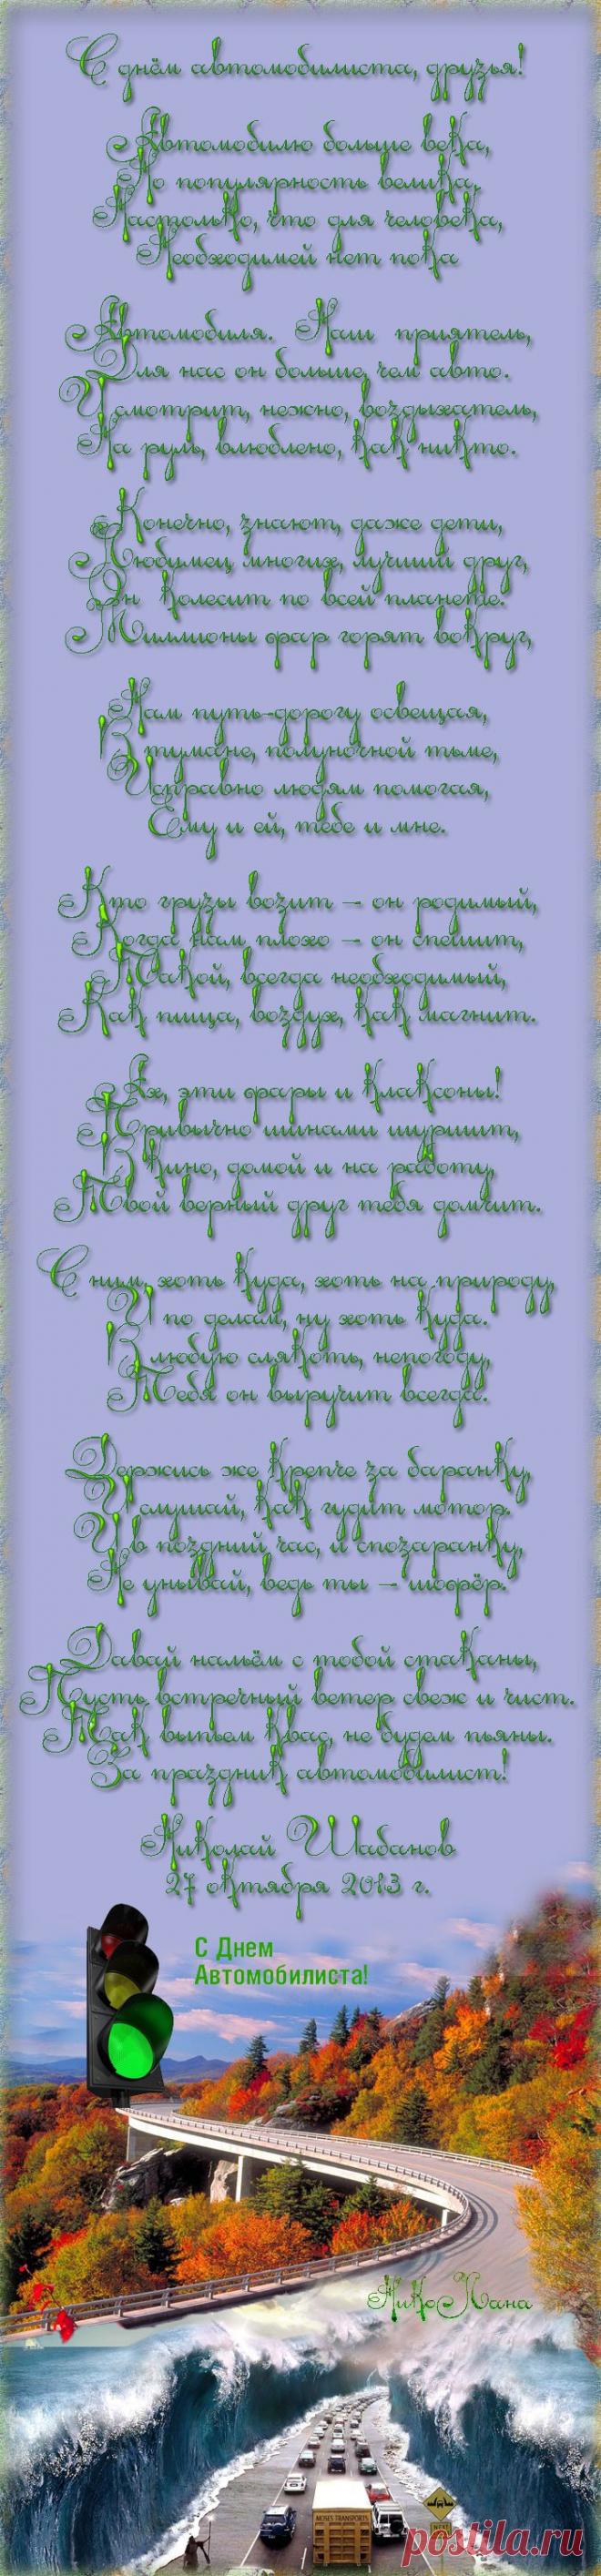 С днём автомобилиста, друзья!
Автомобилю больше века,
Но популярность велика,
Настолько, что для человека,
Необходимей нет пока
Автомобиля. Наш приятель,
Для нас он больше, чем авто.
Усмотрит, нежно, воздыхатель,
На руль, влюблено, как никто.
Конечно, знают, даже дети,
Любимец многих, лучший друг,
Он колесит по всей планете.
Миллионы фар горят вокруг,
Нам путь-дорогу освещая,
В тумане, полуночной тьме,
Исправно людям помогая,
Ему и ей, тебе и мне.
Кто грузы возит – он родимый,
Когда нам плохо – он спешит,
Такой, всегда необходимый,
Как пища, воздух, как магнит.
Ах, эти фары и клаксоны!
Привычно шинами шуршит,
В кино, домой и на работу,
Твой верный друг тебя домчит.
С ним, хоть куда, хоть на природу,
И по делам, ну хоть куда.
В любую слякоть, непогоду,
Тебя он выручит всегда.
Держись же крепче за баранку,
И слушай, как гудит мотор.
И в поздний час, и спозаранку,
Не унывай, ведь ты – шофёр.
Давай нальём с тобой стаканы,
Пусть встречный ветер свеж и чист.
Так выпьем квас, не будем пьяны.
За праздник автомобилист!
Николай Шабанов
27 октября 2013 г.
С Днем
Автомобилиста!
НикоЛана
MOSES TRANSPORTS
NEXT
postila.ru